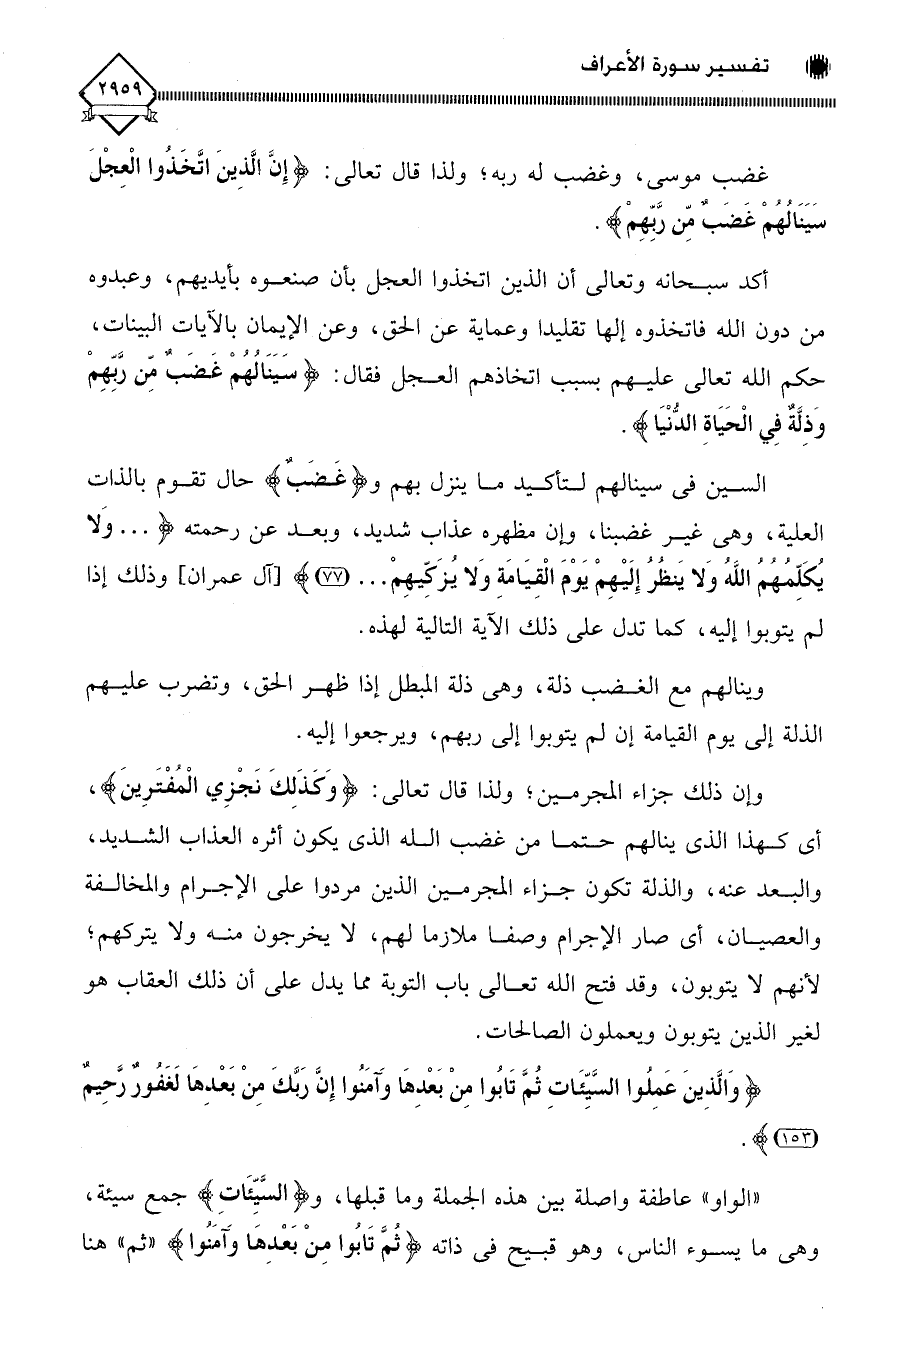 تفسير سورة الأعراف
٢٩٥٩
غضب موسى، وغضب له ربه؛ ولذا قال تعالى: ﴿إِنَّ الَّذِينَ اتَّخَذُوا الْعِجْلَ
سَيَنَالُهُمْ غَضَبٌ مِّن رَّبِّهِمْ﴾.
أكد سبحانه وتعالى أن الذين اتخذوا العجل بأن صنعوه بأيديهم، وعبدوه
من دون الله فاتخذوه إلها تقليدا وعماية عن الحق، وعن الإيمان بالآيات البينات،
حكم الله تعالى عليهم بسبب اتخاذهم العجل فقال: ﴿سَيَنَالُهُمْ غَضَبٌ مِّن رَّبِّهِمْ
وَذِلَّةٌ فِي الْحَيَاةِ الدُّنْيَا﴾.
السين فى سينالهم لتأكيد ما ينزل بهم و﴿غَضَبٌ﴾ حال تقوم بالذات
العلية، وهى غير غضبنا، وإن مظهره عذاب شديد، وبعد عن رحمته ﴿... وَلا
يُكَلِّمُهُمُ اللَّهُ وَلا يَنظُرُ إِلَيْهِمْ يَوْمَ الْقِيَامَةِ وَلا يُزَكِّيهِمْ... (٧٧)﴾ [آل عمران] وذلك إذا
لم يتوبوا إليه، كما تدل على ذلك الآية التالية لهذه.
وينالهم مع الغضب ذلة، وهى ذلة المبطل إذا ظهر الحق، وتضرب عليهم
الذلة إلى يوم القيامة إن لم يتوبوا إلى ربهم، ويرجعوا إليه.
وإن ذلك جزاء المجرمين؛ ولذا قال تعالى: ﴿وَكَذَلِكَ نَجْزِي الْمُفْتَرِينَ﴾،
أى كهذا الذى ينالهم حتما من غضب الله الذى يكون أثره العذاب الشديد،
والبعد عنه، والذلة تكون جزاء المجرمين الذين مردوا على الإجرام والمخالفة
والعصيان، أى صار الإجرام وصفا ملازما لهم، لا يخرجون منه ولا يتركهم؛
لأنهم لا يتوبون، وقد فتح الله تعالى باب التوبة مما يدل على أن ذلك العقاب هو
لغير الذين يتوبون ويعملون الصالحات.
﴿وَالَّذِينَ عَمِلُوا السَّيِّئَاتِ ثُمَّ تَابُوا مِنْ بَعْدِهَا وَآمَنُوا إِنَّ رَبَّكَ مِنْ بَعْدِهَا لَغَفُورٌ رَّحِيمٌ
(١٥٣)﴾.
«الواو» عاطفة واصلة بين هذه الجملة وما قبلها، و﴿السَّيِّئَاتِ﴾ جمع سيئة،
وهى ما يسوء الناس، وهو قبيح فى ذاته ﴿ثُمَّ تَابُوا مِنْ بَعْدِهَا وَآمَنُوا﴾ «ثم» هنا